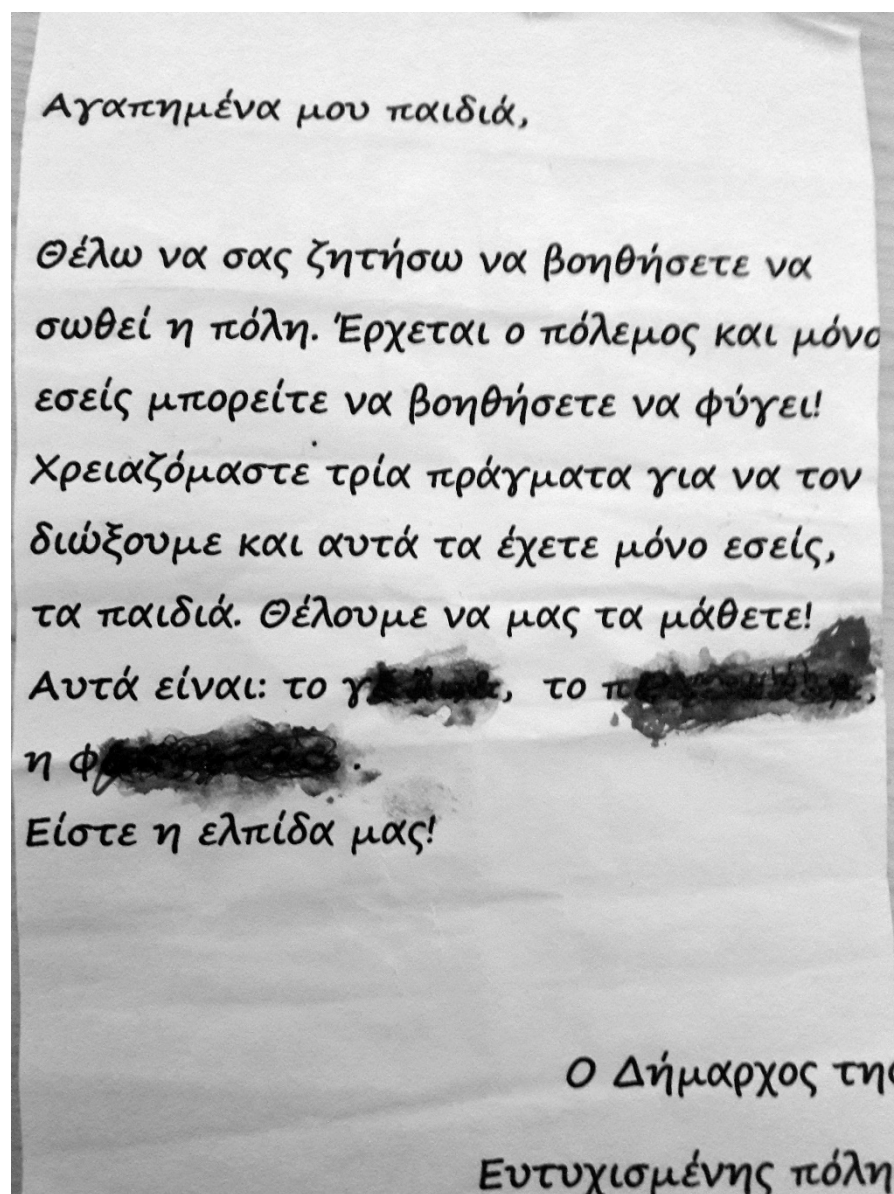 Αγαπημένα μου παιδιά,
Θέλω να σας ζητήσω να βοηθήσετε να
σωθεί η πόλη. Έρχεται ο πόλεμος και μόνο
εσείς μπορείτε να βοηθήσετε να φύγει!
Χρειαζόμαστε τρία πράγματα για να τον
διώξουμε και αυτά τα έχετε μόνο εσείς,
τα παιδιά. Θέλουμε να μας τα μάθετε!
Αυτά είναι: το , το ,
η .
Είστε η ελπίδα μας!
Ο Δήμαρχος της
Ευτυχισμένης πόλη